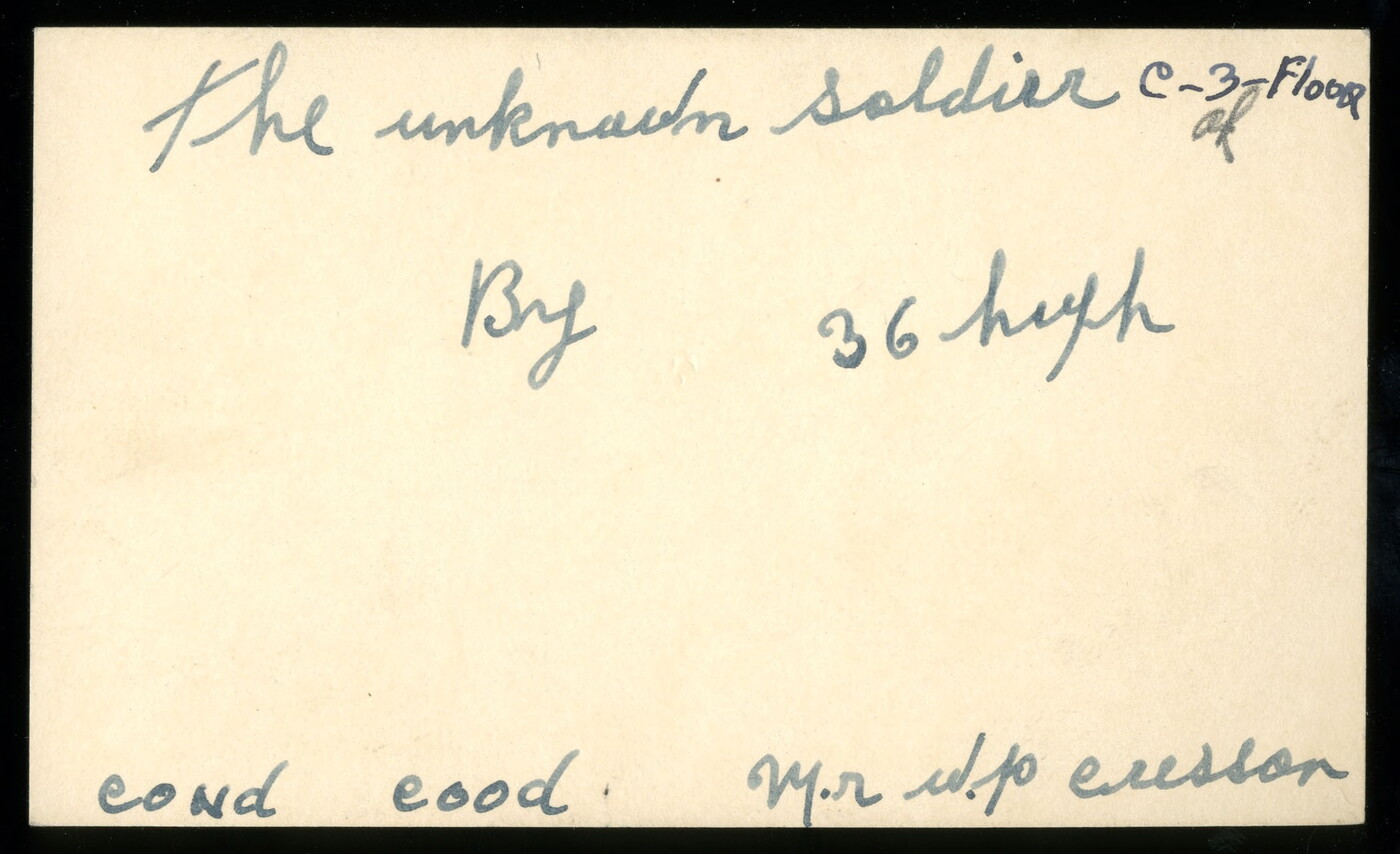 The unknown soldier C-3-Floor
By 36 high
cond cood Mr w.p cresson